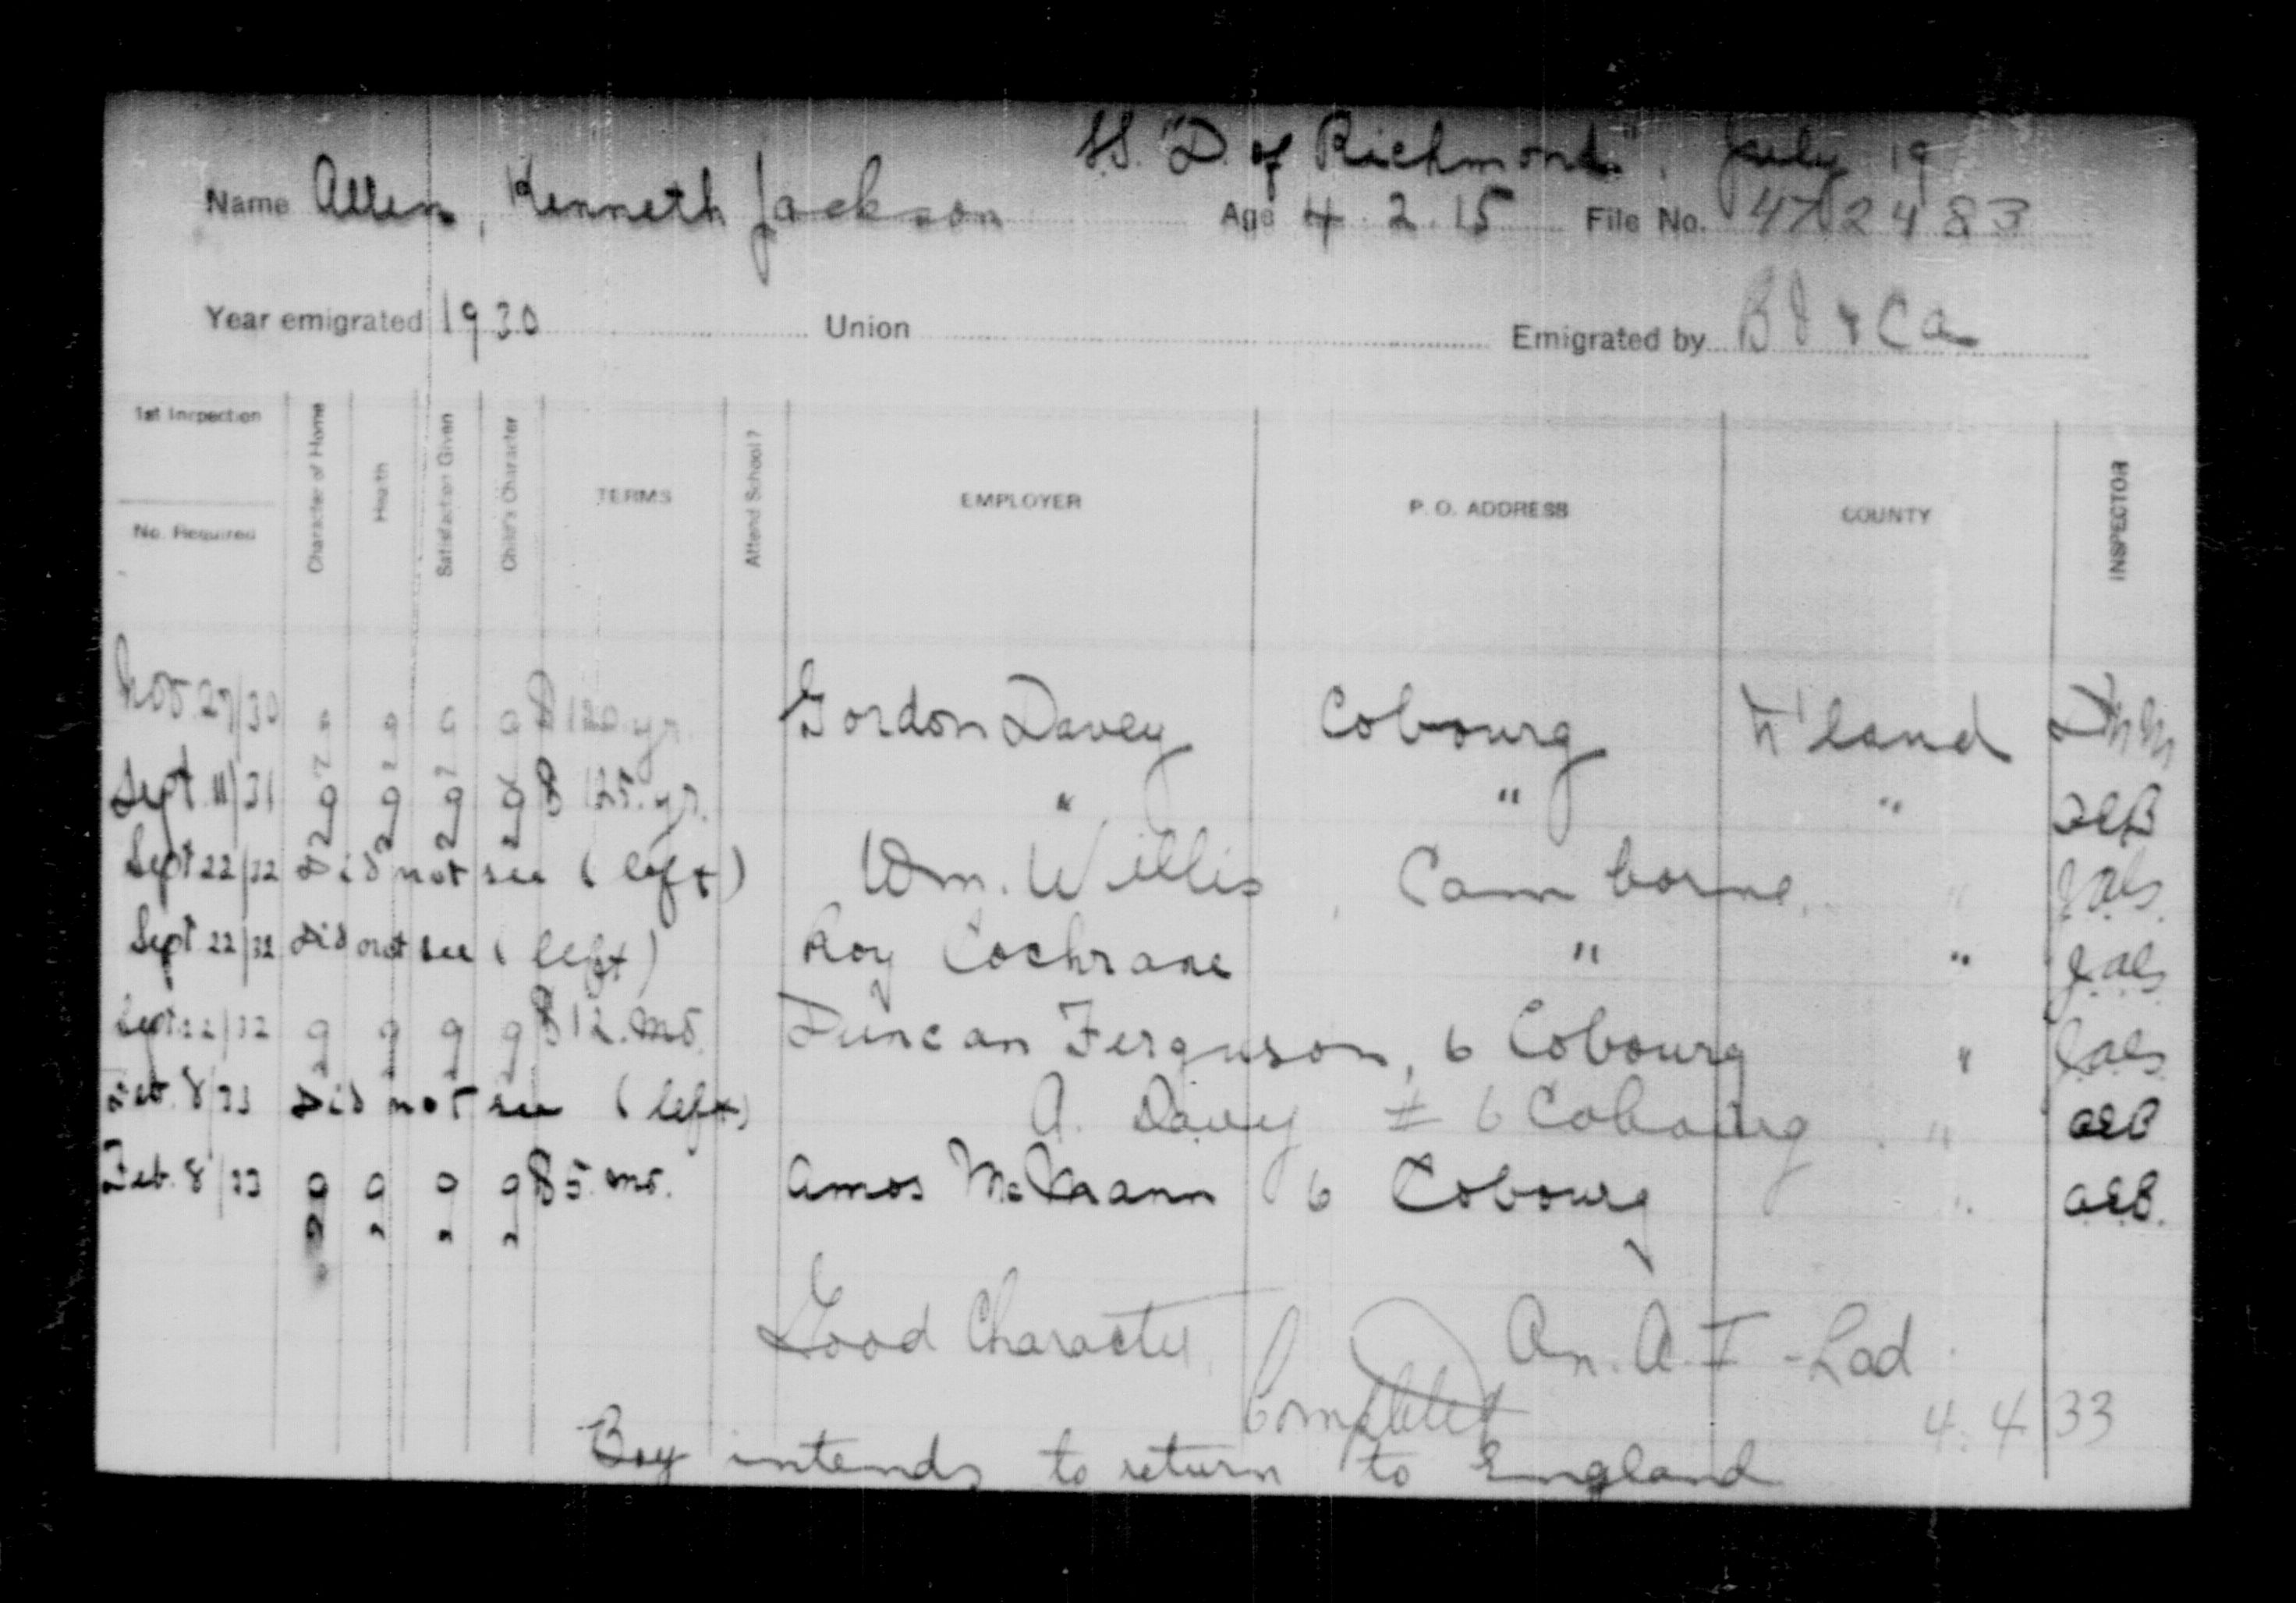 S.S. "D. of Richmond". July 19
Name Allen, Kenneth Jackson Age 4. 2. 15 File No. 472483
Year emigrated 1930 Union Emigrated by
1st Inspection
No. Required
Character of Home
Health
Satisfaction Given
Child's Character
TERMS
Attend School?
EMPLOYER
P. O. ADDRESS
COUNTY
INSPECTOR
Nov. 27/30 g g g g $120 yr. Gordon Davey Cobourg N'land
Sept. 11/31 g g g g $125. yr. " " " AEB
Sept 22/32 Did not see (left) Wm. Willis, Camborne. "
Sept 22/32 Did not see (left) Roy Cochrane " "
Sept. 22/32 g g g g $12. mo. Duncan Ferguson, 6 Cobourg "
Feb. 8/33 Did not see (left) A. Davey # 6 Cobourg. " AEB
Feb. 8/33 g g g g $5. mo. Amos 6 Cobourg " AEB.
Good Character. An. A. I - Lad.
Completed 4. 4 33
Boy intends to return to England